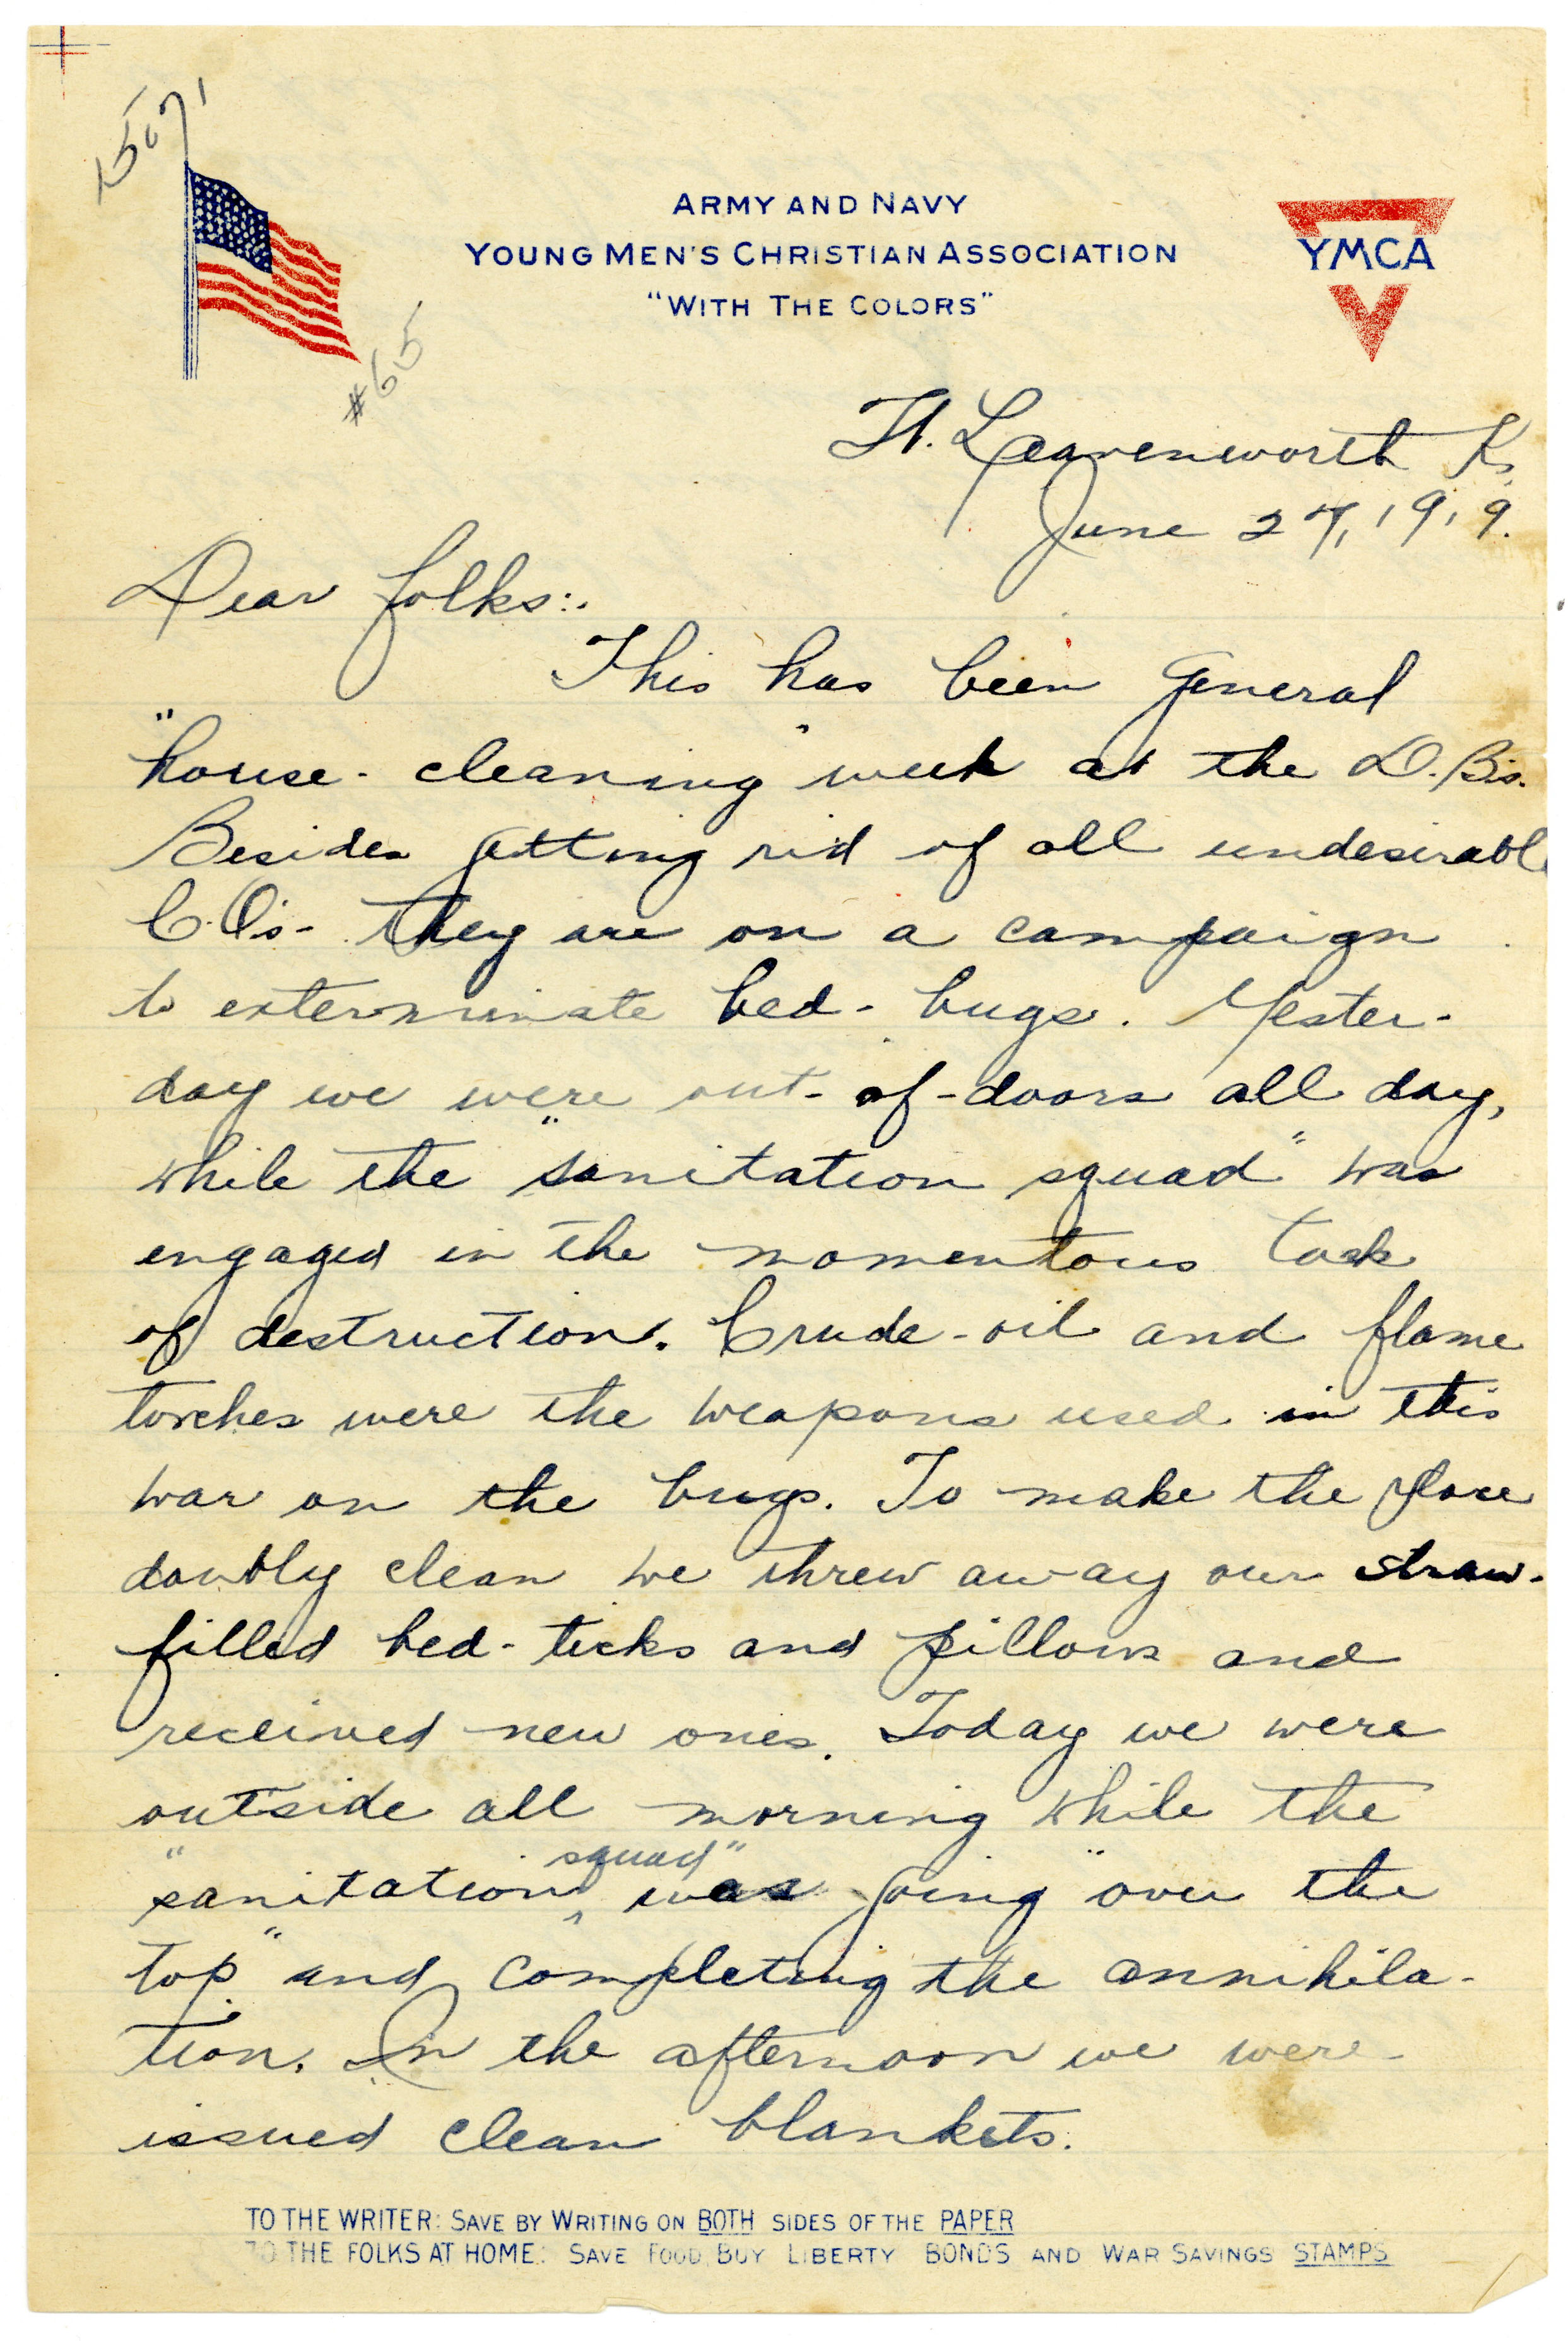 15071
ARMY AND NAVY
YOUNG MEN'S CHRISTIAN ASSOCIATION
"WITH THE COLORS"
YMCA
#65
Ft. Leavenworth Ks.
June 27, 1919.
Dear folks:.
This has been general
"house-cleaning" week at the D.B's.
Besides getting rid of all undesirable
C.O's- they are on a campaign
to exterminate bed-bugs. Yester-
day we were out-of-doors all day,
while the "sanitation squad" was
engaged in the momentous task
of destruction. Crude-oil and flame
torches were the weapons used in this
war on the bugs. To make the place
doubly clean we threw away our straw-
filled bed-ticks and pillows and
received new ones. Today we were
outside all morning while the
"sanitation squad" was going "over the
top" and completing the annihila-
tion. In the afternoon we were
issued clean blankets.
TO THE WRITER: SAVE BY WRITING ON BOTH SIDES OF THE PAPER
TO THE FOLKS AT HOME: SAVE FOOD, BUY LIBERTY BONDS AND WAR SAVINGS STAMPS